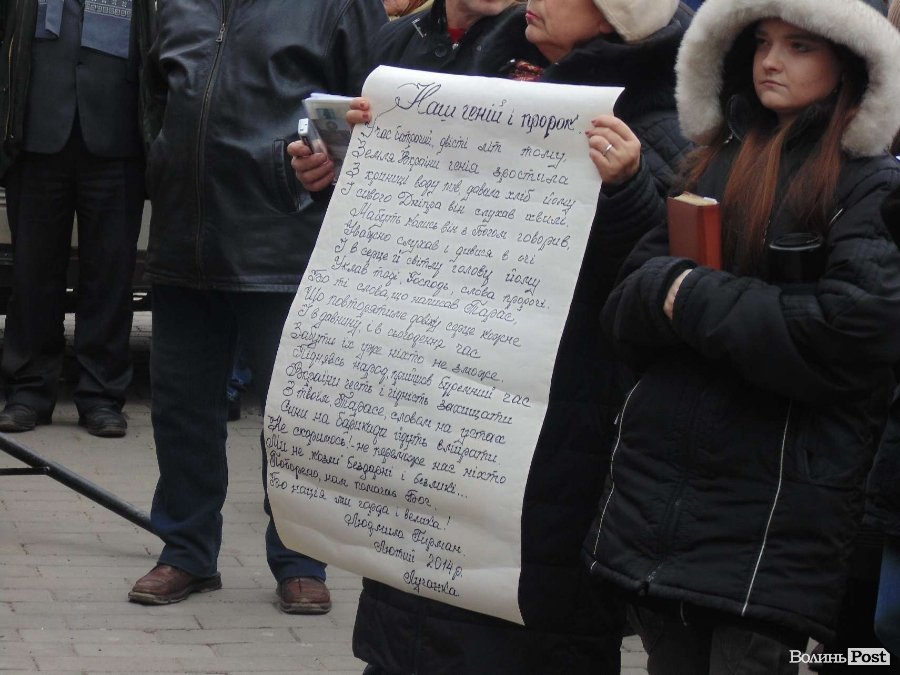 Наш геній і пророк.
У час батогий, двісті літ тому
Земля Вкраїни генія зростила
З криниці воду пив, давала хліб йому
І сивого Дніпра він слухав хвилі,
Мабуть колись він з Богом говорив,
Уважно слухав і дивився в очі
І в серце й світлу голову йому
Уклав тоді, Господь, слова пророчі.
Бо ті слова, що написав Тарас,
Що повторятиме довку серце кожне
І в давнину, і в сьогодення час
Забути їх уже ніхто не зможе.
Піднявсь народ, прийшов буремний час
Вкраїни честь і гідність захищати
З твоїм, Тарасе, словом на устах
Сини на барикади йдуть вмирати
Не скоримось! - не переможе нас ніхто
Ми не жалкі бездарні і безликі...
Поборено нам помагає Бог,
Бо нація ми горда і велика!
Людмила Гирман.
Лютий 2014 р.
Луганка.
ВолиньPost